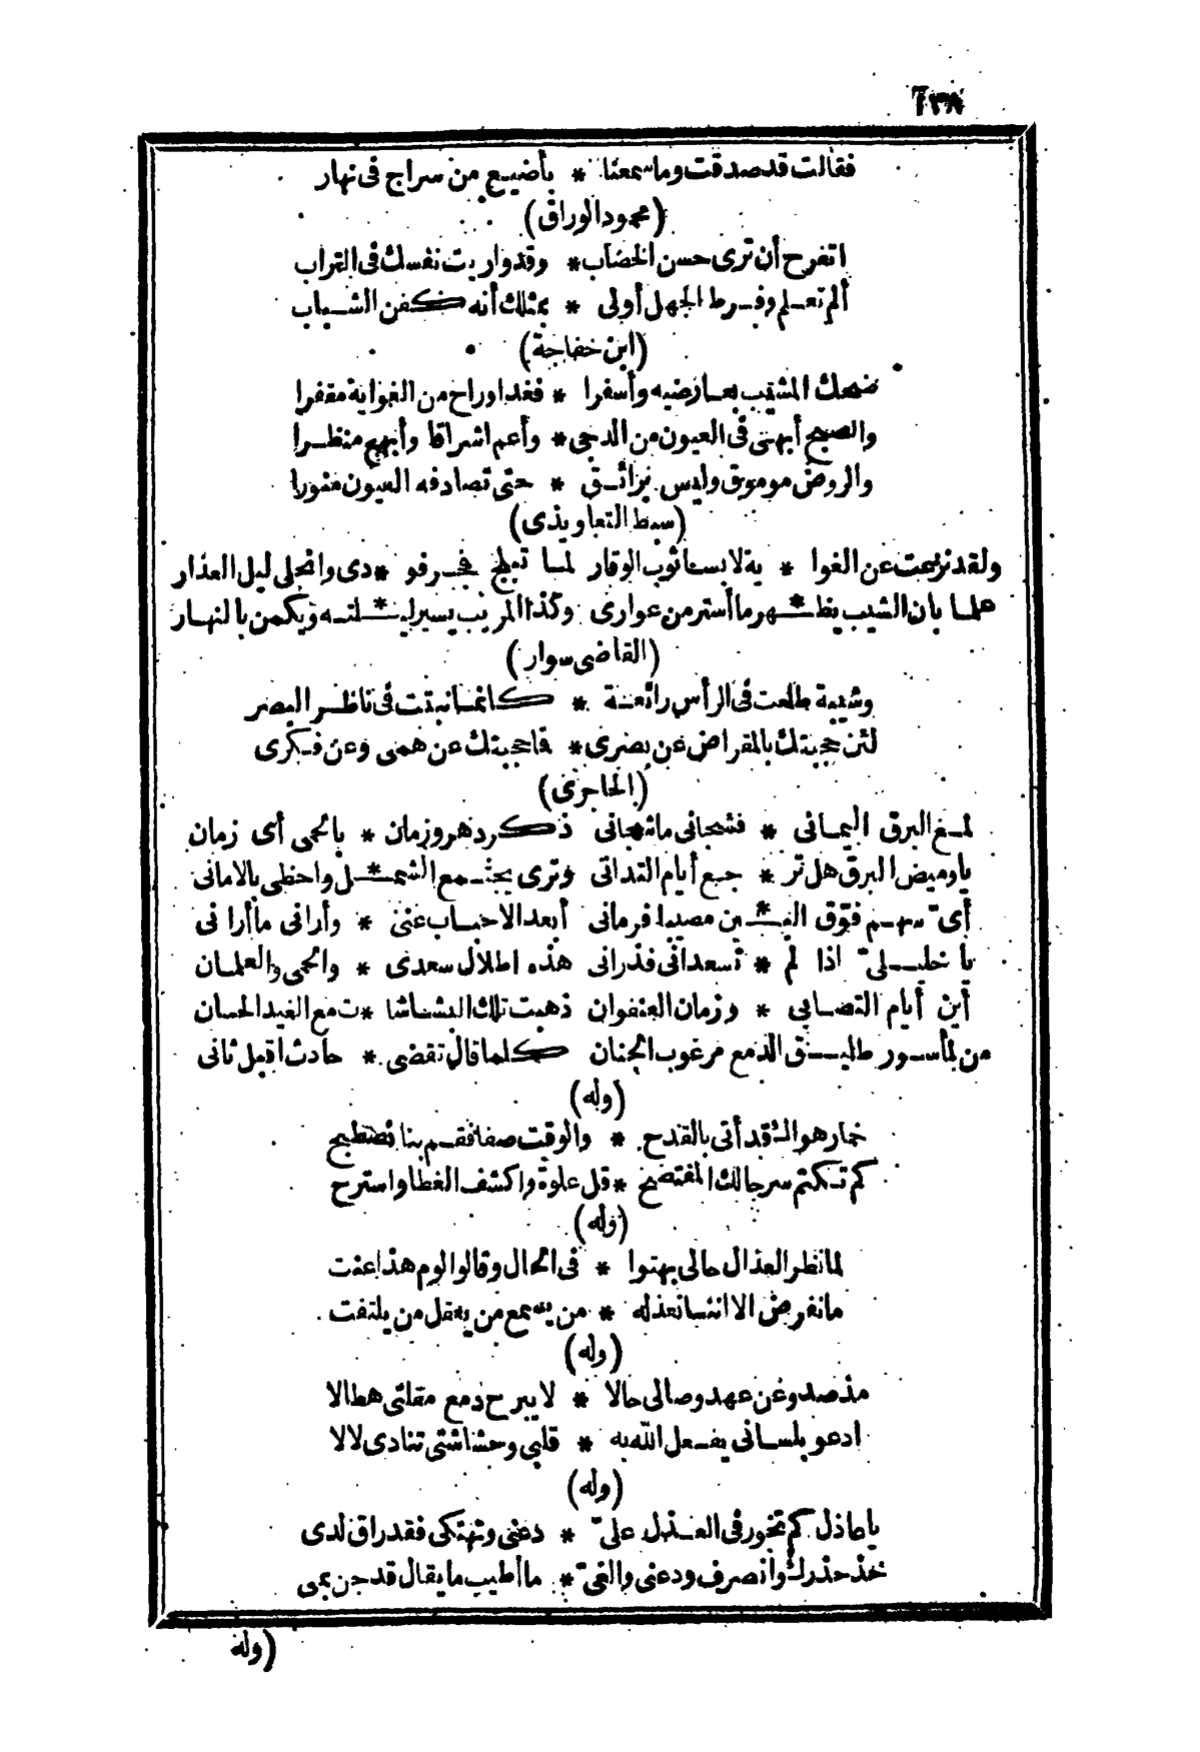 فقالت قد صدقت وما سمعنا * بأضيع من سراج فى نهار
(محمود الوراق)
اتفرح أن ترى حسن الخضاب * وقد واريت نفسك فى التراب
ألم تعلم وفرط الجهل أولى * بمثلك أنه كفن الشباب
(ابن خفاجة)
ضحك المشيب بعارضيه وأسفرا * فغدا وراح من الغواية مقفرا
والصبح أبهى فى العيون من الدجى * وأعم اشراقا وأبهج منظرا
والروض موموق وليس برائق * حتى تصادفه العيون منورا
(سبط التعاويذى)
ولقد نزعت عن الغوا * ية لابسا ثوب الوقار لما تبلج فجر فو * دى وانجلى ليل العذار
علما بان الشيب يظـ * ـهر ما أستر من عوارى وكذا المريب يسير ليـ * ـلته ويكمن بالنهار
(القاضى سوار)
وشيبة طلعت فى الرأس رائعة * كانما نبتت فى ناظر البصر
لئن حجبتك بالمقراض عن بصرى * فاحجبتك عن همى وعن فكرى
(الحاجرى)
لمع البرق اليمانى * فشجانى ماشجانى ذكر دهر وزمان * بالحمى أى زمان
ياوميض البرق هل تر * جع أيام التدانى وترى يجتمع الشمـ * ـل واحظى بالامانى
أىّ سهم فوّق البيـ * ـن مصيبا فرمانى أبعد الاحباب عنى * وأرانى ما أرانى
يا خليلىّ اذا لم * تسعدانى فذرانى هذه اطلال سعدى * والحمى والعلمان
أين أيام التصابى * وزمان العنفوان ذهبت تلك البشاشا * ت مع الغيد الحسان
من لمأسور طليق الدمع مرغوب الجنان كلما قال تقضى * حادث اقبل ثانى
(وله)
خمار هوالـ قد أتى بالقدح * والوقت صفا فقم بنا نصطبح
كم تكتم سر حالك المفتضح * قل علوة واكشف الغطا واسترح
(وله)
لما نظر العذال حالى بهتوا * فى الحال وقالوا لوم هذا عنت
ما نفرض الا اننا نعذله * من يسمع من يعقل من يلتفت
(وله)
مذ صد وعن عهد وصالى حالا * لا يبرح دمع مقلتى هطالا
ادعو بلسانى يفعل الله به * قلبى وحشاشتى تنادى لا لا
(وله)
ياعاذل كم تجور فى العذل علىّ * دعنى وتهتكى فقد راق لدى
خذ حذرك وانصرف ودعنى والغىّ * ما أطيب ما يقال قد جن بمى
(وله